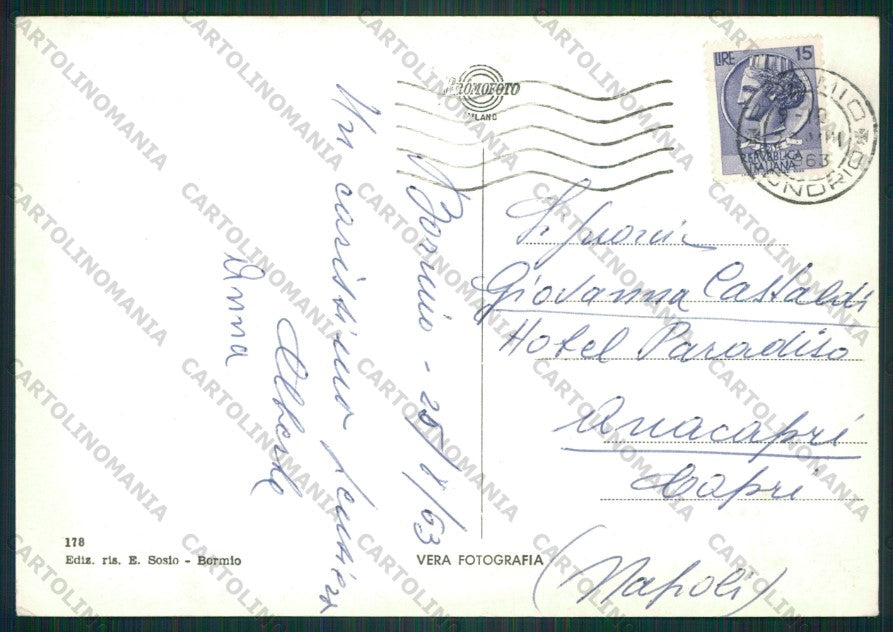 Bormio - 25/8/63
Un carissimo pensiero
Alberto
Anna
Signorina
Giovanna Castaldi
Hotel Paradiso
Anacapri
Capri
(Napoli)
PROMOFOTO
MILANO
LIRE 15
REPUBBLICA
ITALIANA
SONDRIO
63
178
Ediz. ris. E. Sosio - Bormio
VERA FOTOGRAFIA
CARTOLINOMANIA